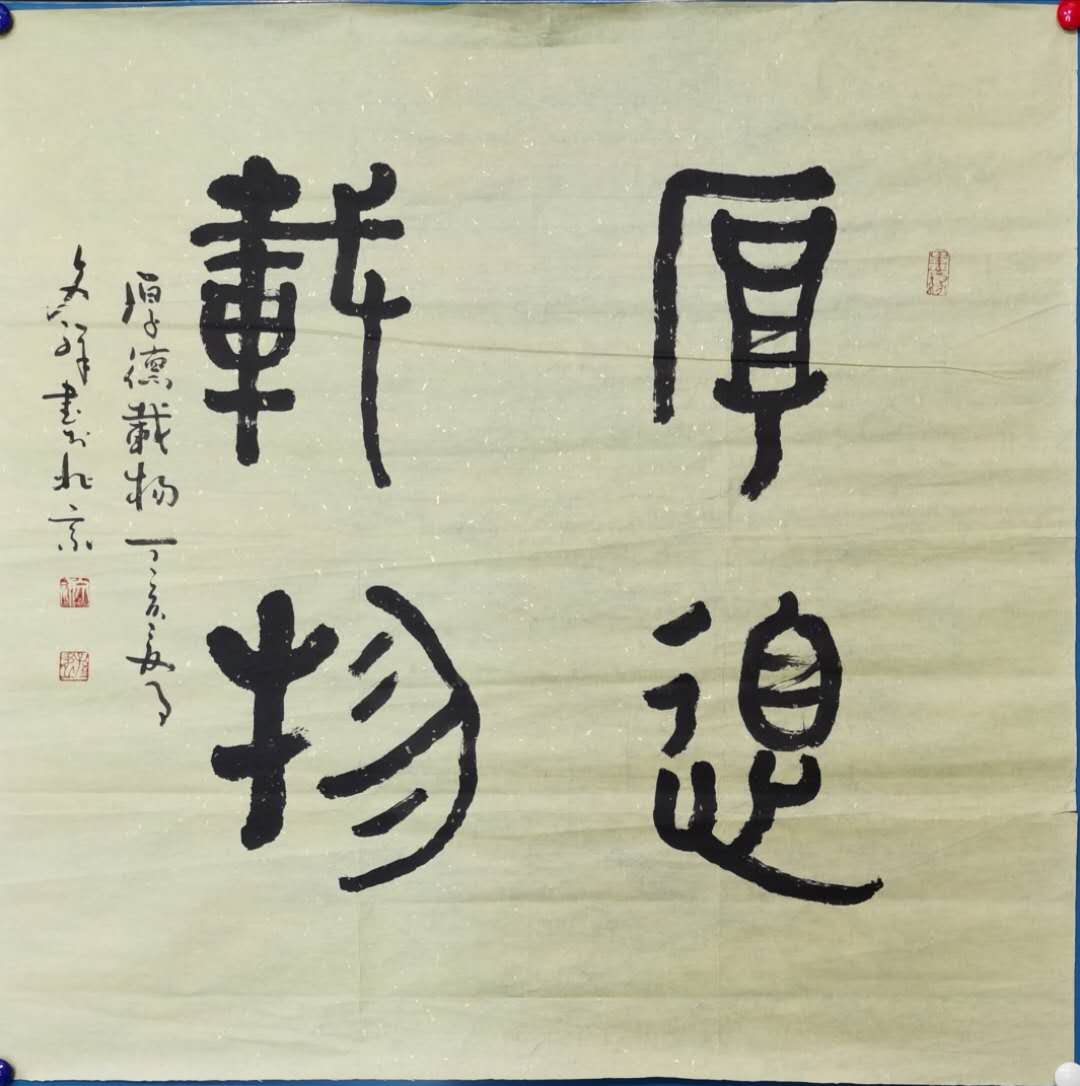 厚德
載物
厚德載物 丁亥夏月
文祥書於北京